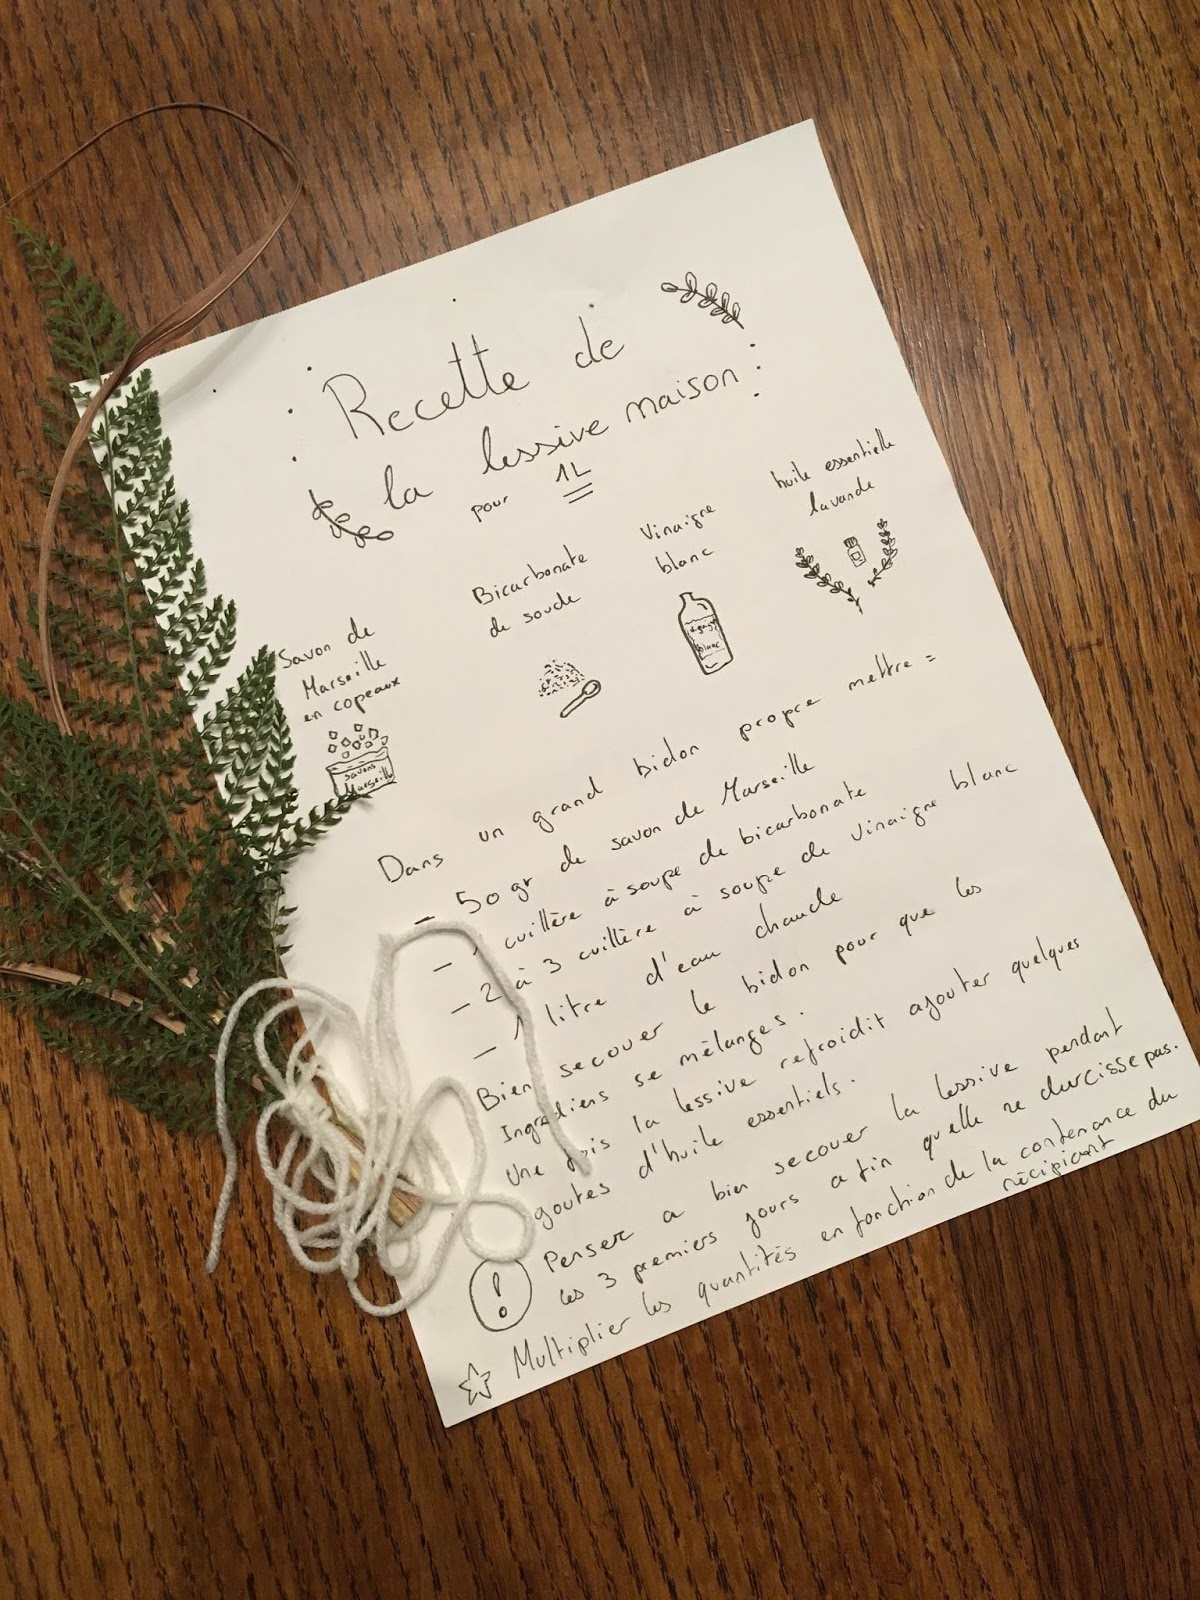 Recette de
la lessive maison
pour 1L
Savon de
Marseille
en copeaux
savons
Marseille
Bicarbonate
de soude
Vinaigre
blanc
blanc
huile essentielle
lavande
Dans un grand bidon propre mettre =
- 50 gr de savon de Marseille
- 1 cuillère à soupe de bicarbonate
- 2 à 3 cuillère à soupe de vinaigre blanc
- 1 litre d'eau chaude
Bien secouer le bidon pour que les
Ingrédiens se mélanges.
Une fois la lessive refroidit ajouter quelques
goutes d'huile essentiels.
! Penser a bien secouer la lessive pendant
les 3 premiers jours afin quelle ne durcisse pas.
Multiplier les quantités en fonction de la contenance du
récipiant